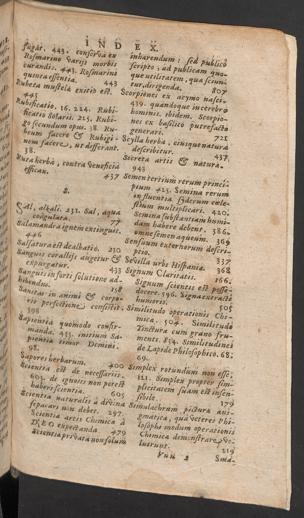 INDEX.
fugat. 443. conserva ex
Rosmarino varijs morbis
curandis. 443. Rosmarini
quinta essentia. 443
Rubeta mustela exitio est.
445
Rubificatio. 16. 224. Rubi-
ficatio Solaris. 225. Rubi-
go secundum opus. 38. Ru-
beum facere & Rubigi-
nem facere, ut differant.
38.
Ruta herba, contra Veneficia
efficax. 437
S.
Sal, alkali. 232. Sal, aqua
coagulata. 77
Salamandra ignem extinguit.
446
Salsatura est dealbatio. 230
Sanguis corallijs augetur &
expurgatur. 433
Sanguis in furti solutione ad-
hibendus. 158
Sanitas in animi & corpo-
ris perfectione consistit.
398
Sapientia quomodo confir-
manda. 433. initium Sa-
pientiæ timor Domini.
98.
Sapores herbarum. 400
Scientia est de necessarijs.
603. de ignotis non potest
haberi scientia. 605
Scientia naturalis à divina
separari non debet. 297.
Scientia artis Chemica à
DEO expectanda 479
Scientia privata non solum
inharendum; sed publico
scripto, ad publicam quo-
que utilitatem, qua scriun-
tur, dirigenda. 807
Scorpiones ex ocymo nasci.
439. quandoque in cerebro
hominis. ibidem. Scorpio-
nes ex basilico putrefacto
generari. 721
Scylla herba, eiusque natura
describitur. 437
Secreta artis & natura.
943
Semen tertium rerum princi-
pium 425. Semina rerum
in fluentia syderum cæle-
stium multiplicari. 420.
Semina substantiam humi-
dam habere debent. 386.
omne semen aqueum. 369
Sensuum exteriorum descri-
ptio. 337
Sevilla urbs Hispania. 368
Signum Claritatis. 166.
Signum scientis est posse
docere. 596. Signa extracti
humoris. 505
Similitudo operationis Che-
mica. 504. Similitudo
Tinctura cum grano fru-
menti. 854. Similitudines
de Lapide Philosophico. 68.
69.
Simplex rotundum non esse.
121. Simplex propter sim-
plicitatem suam est insen-
sibile.
Simulachrum pictura ani-
matica, qua veteres Phi-
losophi modum operationis
Chemica demonstrare vo-
luerunt. 219
Vuu 2 Sma-